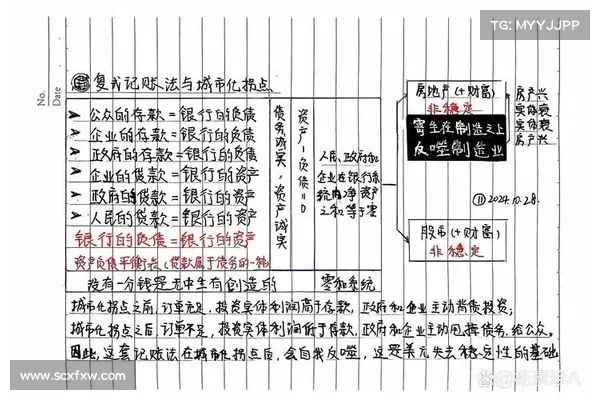 TG: MYYJJPP
No.
Date
复式记账法与城市化拐点
公众的存款=银行的负债
企业的存款=银行的负债
政府的存款=银行的负债
企业的贷款=银行的资产
政府的贷款=银行的资产
人民的贷款=银行的资产
银行的负债=银行的资产
资产负债平衡表(贷款属于债务的一种)
没有一分钱是无中生有创造的
债务诚实,资产诚实
资产-负债=0
人民、政府和
企业在银行系
统内净资产
之和等于零
零和系统
房地产(+财富)
非稳定
寄生在制造之上
反噬制造业
房产兴
实体衰
实体衰
房产兴
⑪2024.10.28.
股市(+财富)
非稳定
城市化拐点之前,订单充足,投资实体利润高于存款,政府和企业主动背债投资;
城市化拐点之后,订单不足,投资实体利润低于存款,政府和企业主动甩掉债务给公众。
因此,这套记账法在城市化拐点后,会自我反噬,这是美元失去稳定性的基础
www.scxfxw.com